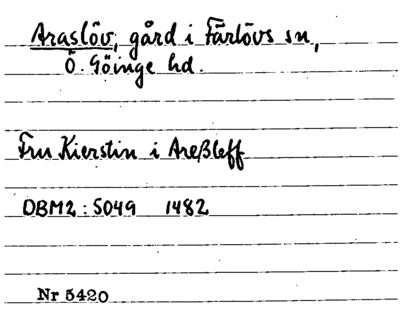 Araslöv, gård i Färlövs sn,
Ö. Göinge hd.
Fru Kierstin i Areßleff
DBM2: 5049 1482
Nr 5420